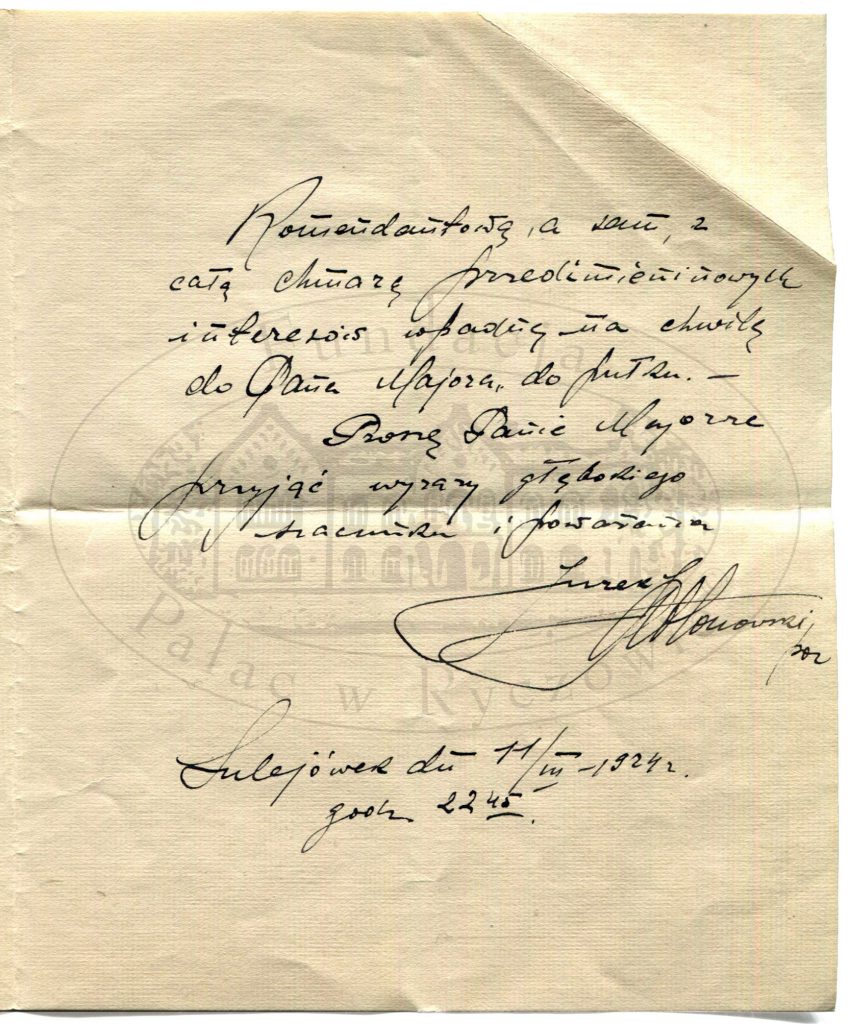 Komendantową, a sam, z
całą chmarą przedimieninowych
interesów wpadnę na chwilę
do Pana Majora, do pułku. –
Proszę Panie Majorze
przyjąć wyrazy głębokiego
szacunku i poważania
Jurek
por
Sulejówek dn 11/III – 1924 r.
godz. 22 45.
Fundacja
Pałac w Ryczowie